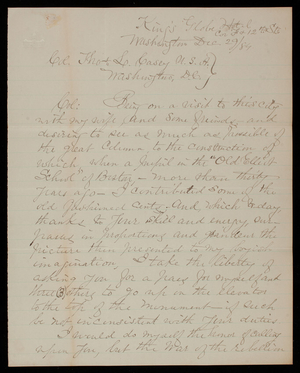 King's Globe Hotel
Washington Dec. 29/84
Col. Thos L. Casey U.S.A.
Washington, D.C.
Col: Being on a visit to this city
with my wife, and some friends, and
desiring to see as much as possible of
the great Column to the construction of
which, when a pupil in the "Old Eliot
School" of Boston - more than thirty
years ago - I contributed some of the
old fashioned cents - And, which today
thanks to your skill and energy sur-
passes in proportions and grandeur the
picture then presented to my boyish
imagination. I take the liberty of
asking you for a pass for myself and
three others to go up in the elevator
to the top of the Monument - if such
be not inconsistent with your duties
I would do myself the honor of calling
upon you, but the War of the Rebellion